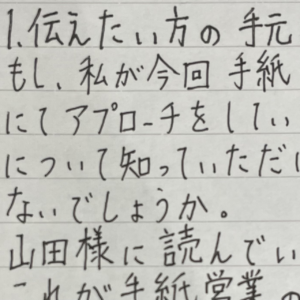 1.伝えたい方の手元
もし、私が今回手紙
にてアプローチをしてい
について知っていただ
ないでしょうか。
山田様に読んでい
これが手紙営業の